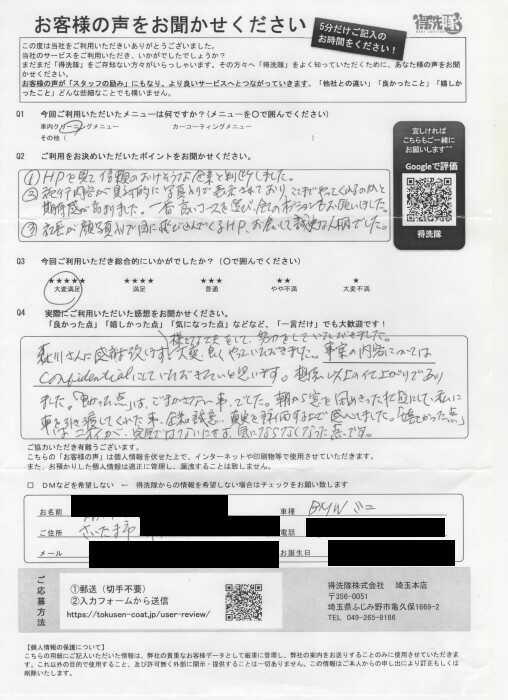 お客様の声をお聞かせください
5分だけご記入の
お時間をください!
得洗隊
この度は当社をご利用いただきありがとうございました。
当社のサービスをご利用いただき、いかがでしたでしょうか?
まだまだ「得洗隊」をご存知ない方々がいらっしゃいます。その方々へ「得洗隊」をよく知っていただくために、あなた様の声をお聞かせください。
お客様の声が「スタッフの励み」にもなり、より良いサービスへとつながっていきます。「他社との違い」「良かったこと」「嬉しかったこと」どんな些細なことでも構いません。
Q1 今回ご利用いただいたメニューは何ですか?(メニューを〇で囲んでください)
車内クリーニングメニュー カーコーティングメニュー
その他( )
Q2 ご利用をお決めいただいたポイントをお聞かせください。
①HPを見て信頼のおけそうな企業と判断しました。
②施行内容が具体的に写真入りで表示されており、ここまでやってくれるのかと
期待感が高まりました。一番高いコースを選び、他のオプションもお願いしました。
③社長が顔写真入りで目に飛び込んでくるHP、お会いして誠実な人柄でした。
宜しければ
こちらもご一緒に
お願いします
Googleで評価
得洗隊
Q3 今回ご利用いただき総合的にいかがでしたか?(〇で囲んでください)
★★★★★ ★★★★ ★★★ ★★ ★
大変満足 満足 普通 やや不満 大変不満
Q4 実際にご利用いただいた感想をお聞かせください。
「良かった点」「嬉しかった点」「気になった点」などなど、「一言だけ」でも大歓迎です!
様々な工夫をして、努力をしていただきました。
森川さんに感謝致します 大変、良くやっていただきました。事案の内容については
Confidentialにしていただきたいと思います。想像以上の仕上がりであり
ました。
ご協力いただき有難うございます。
こちらの「お客様の声」は個人情報を伏せた上で、インターネットや印刷物等で使用させていただきます。
また、お預かりした個人情報は適正に管理し、漏洩することは致しません。
□ DMなどを希望しない ← 得洗隊からの情報を希望しない場合はチェックをお願い致します
お名前 車種 BMW ミニ
ご住所 さいたま市 電話
メール お誕生日
ご応募方法
①郵送(切手不要)
②入力フォームから送信
https://tokusen-coat.jp/user-review/
得洗隊株式会社 埼玉本店
〒356-0051
埼玉県ふじみ野市亀久保1669-2
TEL 049-265-8186
【個人情報の保護について】
こちらの用紙にご記入いただいた情報は、弊社の貴重なお客様データとして厳重に管理し、弊社の案内をお送りすることのみに使用させていただきます。これ以外の目的で使用すること、及び許可無く外部に開示・提供することは一切ありません。この情報はご本人からの申し出により訂正もしくは削除いたします。